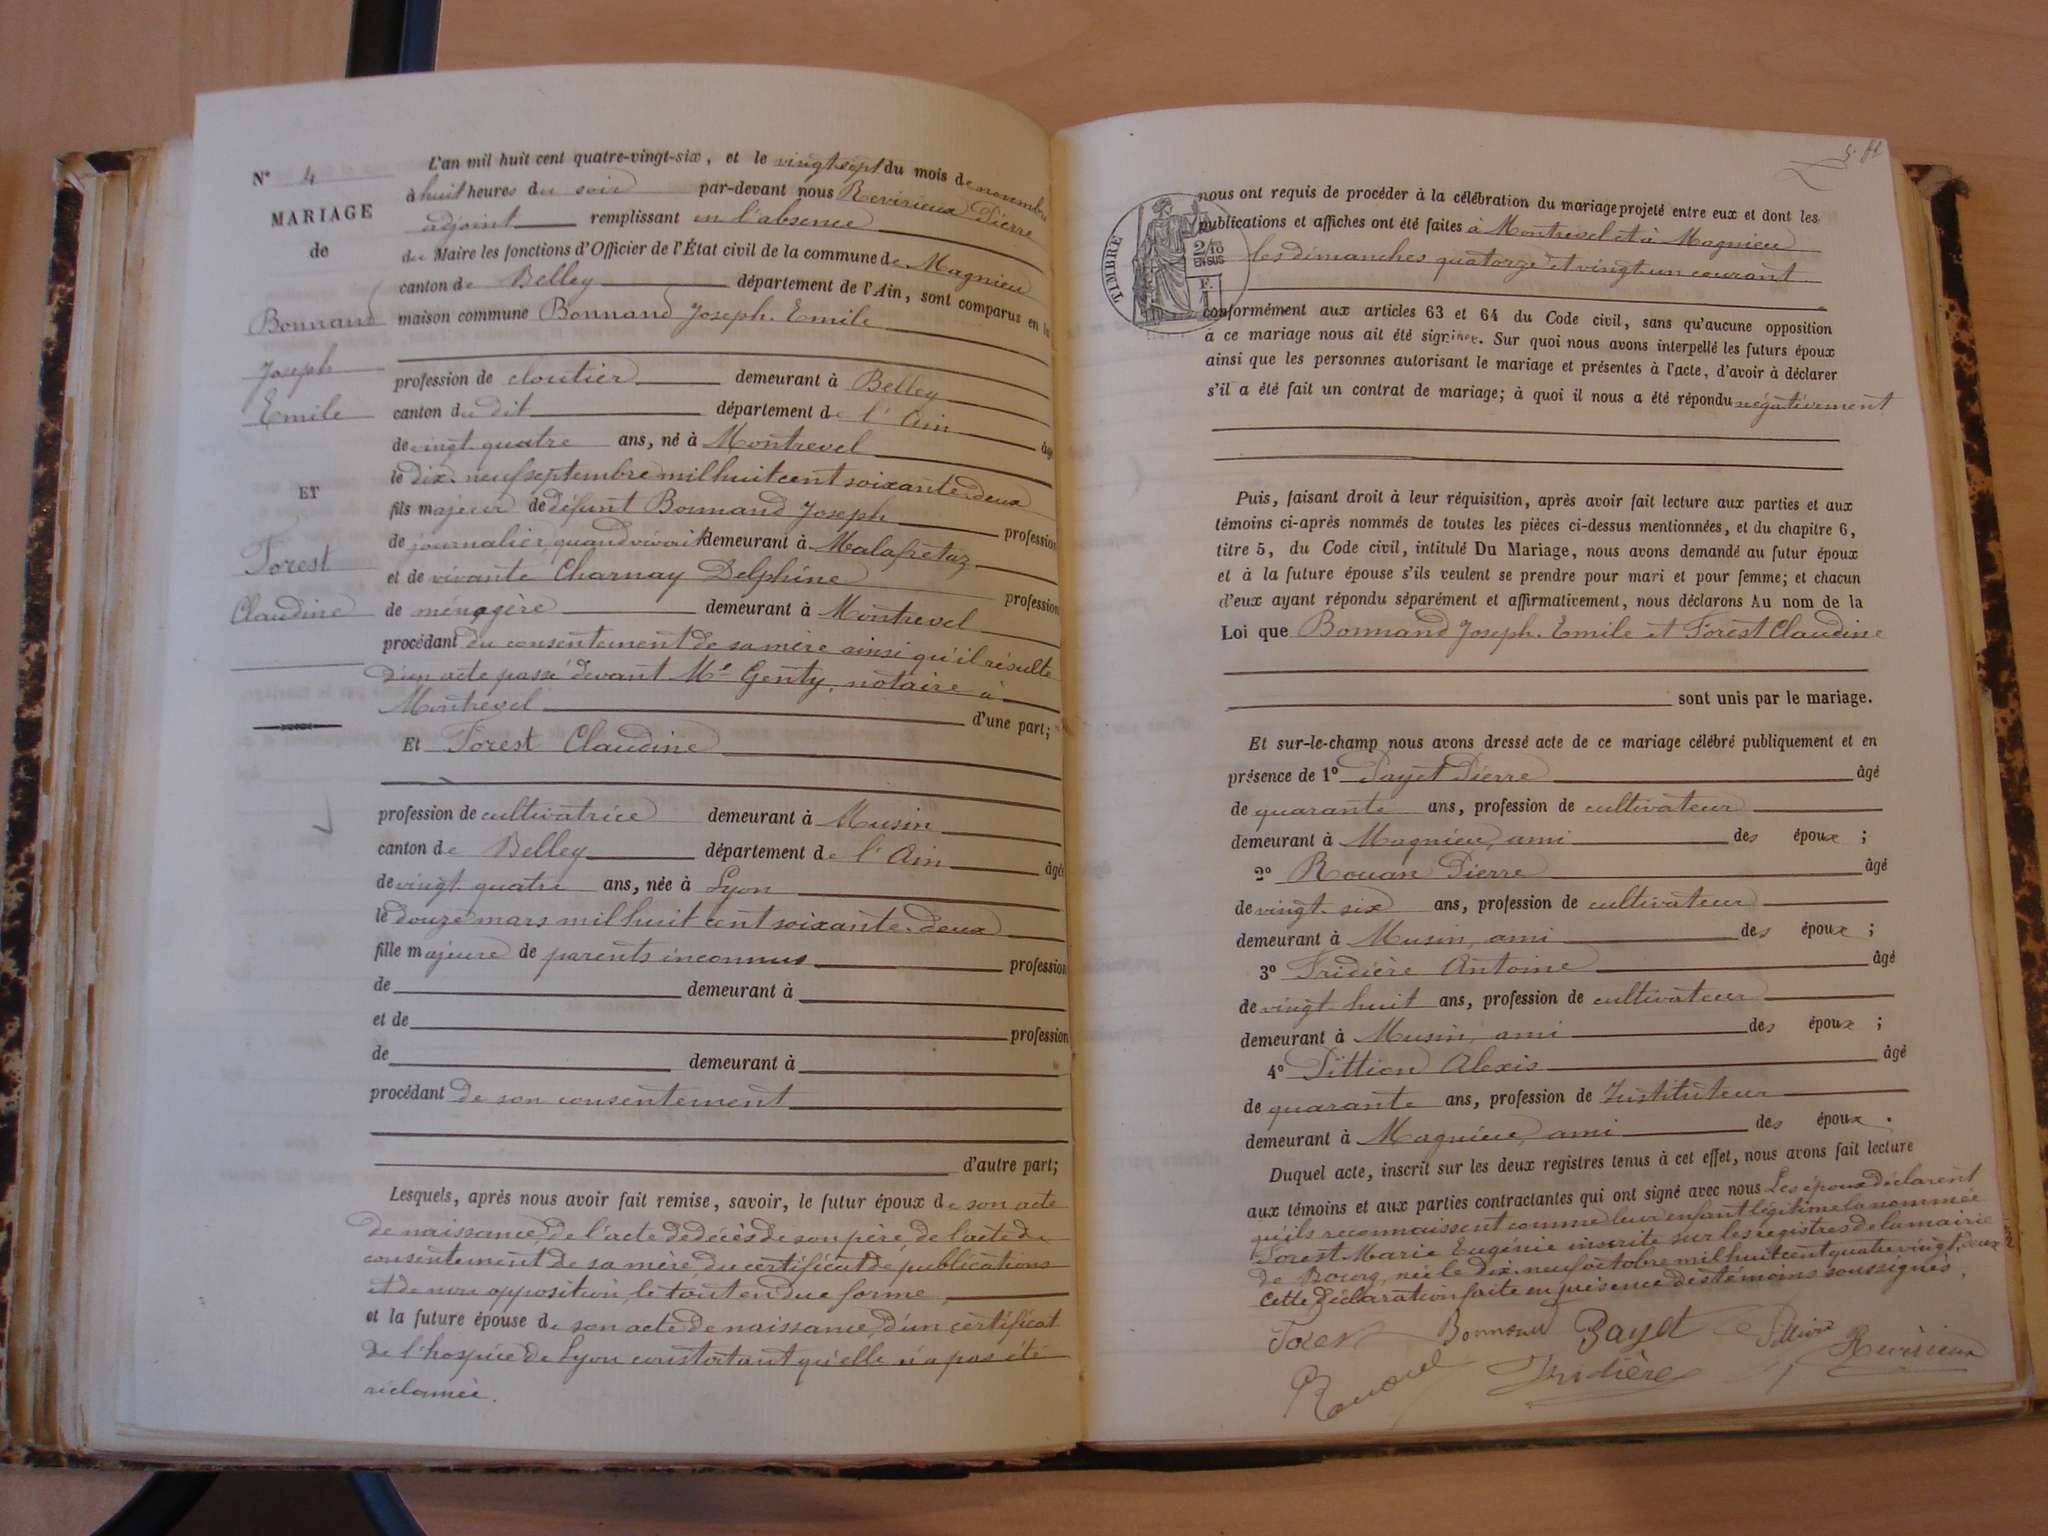 N° 4
MARIAGE
de
Bonnand
Joseph
Emile
ET
Forest
Claudine
L'an mil huit cent quatre-vingt-six, et le vingt sept du mois de novembre
à huit heures du soir par-devant nous Revirieux Pierre
adjoint remplissant en l'absence
du Maire les fonctions d'Officier de l'État civil de la commune de Magnieu
canton de Belley département de l'Ain, sont comparus en la
maison commune Bonnand Joseph. Emile
profession de cloutier demeurant à Belley
canton du dit département de l'Ain âgé
de vingt quatre ans, né à Montrevel
le dix-neuf septembre mil huit cent soixante-deux
fils majeur de défunt Bonnand Joseph profession
de journalier, quand vivait demeurant à Malafretaz
et de vivante Charnay Delphine profession
de ménagère demeurant à Montrevel
procédant du consentement de sa mère ainsi qu'il résulte
d'un acte passé devant Me Genty, notaire à
Montrevel d'une part;
Et Forest Claudine
profession de cultivatrice demeurant à Musin
canton de Belley département de l'Ain âgée
de vingt quatre ans, née à Lyon
le douze mars mil huit cent soixante-deux
fille majeure de parents inconnus profession
de demeurant à
et de profession
de demeurant à
procédant de son consentement
d'autre part;
Lesquels, après nous avoir fait remise, savoir, le futur époux de son acte
de naissance, de l'acte de décès de son père de l'acte de
consentement de sa mère du certificat de publications
et de non opposition, le tout en due forme,
et la future épouse de son acte de naissance, d'un certificat
de l'hospice de Lyon constatant qu'elle n'a pas été
réclamée.
TIMBRE
2/10
EN SUS
F.
1
nous ont requis de procéder à la célébration du mariage projeté entre eux et dont les
publications et affiches ont été faites à Montrevel et à Magnieu
les dimanches quatorze et vingt un courant
conformément aux articles 63 et 64 du Code civil, sans qu'aucune opposition
à ce mariage nous ait été signifiée. Sur quoi nous avons interpellé les futurs époux
ainsi que les personnes autorisant le mariage et présentes à l'acte, d'avoir à déclarer
s'il a été fait un contrat de mariage; à quoi il nous a été répondu négativement
Puis, faisant droit à leur réquisition, après avoir fait lecture aux parties et aux
témoins ci-après nommés de toutes les pièces ci-dessus mentionnées, et du chapitre 6,
titre 5, du Code civil, intitulé Du Mariage, nous avons demandé au futur époux
et à la future épouse s'ils veulent se prendre pour mari et pour femme; et chacun
d'eux ayant répondu séparément et affirmativement, nous déclarons Au nom de la
Loi que Bonnand Joseph. Emile et Forest Claudine
sont unis par le mariage.
Et sur-le-champ nous avons dressé acte de ce mariage célébré publiquement et en
présence de 1° Payet Pierre âgé
de quarante ans, profession de cultivateur
demeurant à Magnieu, ami des époux ;
2° Rouan Pierre âgé
de vingt-six ans, profession de cultivateur
demeurant à Musin, ami des époux ;
3° Fridière Antoine âgé
de vingt huit ans, profession de cultivateur
demeurant à Musin, ami des époux ;
4° Pittion Alexis âgé
de quarante ans, profession de Instituteur
demeurant à Magnieu, ami des époux.
Duquel acte, inscrit sur les deux registres tenus à cet effet, nous avons fait lecture
aux témoins et aux parties contractantes qui ont signé avec nous Les époux déclarent
qu'ils reconnaissent comme leur enfant légitime la nommée
Forest Marie Eugénie inscrite sur les registres de la mairie
de Bourg, née le dix-neuf octobre mil huit cent quatre vingt-deux
Cette déclaration faite en présence des témoins soussignés.
Forest Bonnand Payet Pittion Revirieux
Rouan Fridière